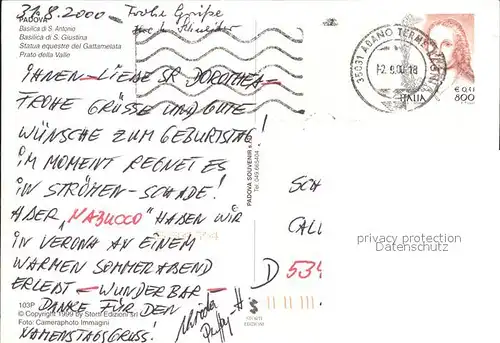 31.8.2000 — Frohe Grüße
PADOVA
Basilica di S. Antonio
Basilica di S. Giustina
Statua equestre del Gattamelata
Prato della Valle
IHNEN – LIEBE SR DOROTHEA –
FROHE GRÜSSE UND GUTE
WÜNSCHE ZUM GEBURTSTAG!
IM MOMENT REGNET ES
IN STRÖMEN – SCHADE!
ABER „NABUCCO" HABEN WIR
IN VERONA AN EINEM
WARMEN SOMMERABEND
ERLEBT – WUNDERBAR –
DANKE FÜR DEN
NAMENSTAGSGRUSS!
103P
© Copyright 1999 by Storti Edizioni srl
Foto: Cameraphoto Immagini
PADOVA SOUVENIR
Tel. 049.663404
STORTI
EDIZIONI
35031 ABANO TERME
ITALIA
€ 0,41
800
SCH
CALL
D 534
privacy protection
VDBBVBGBVGDB